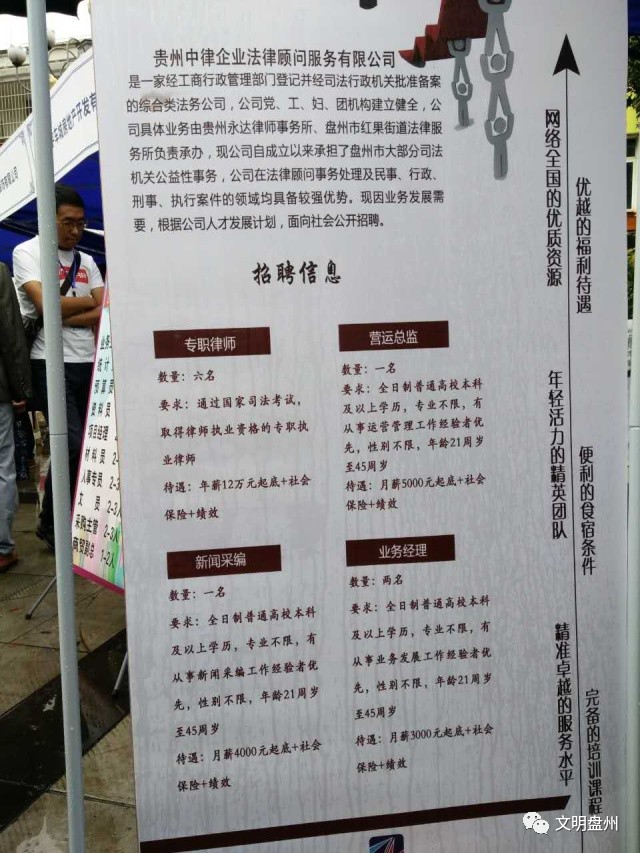 贵州中律企业法律顾问服务有限公司
是一家经工商行政管理部门登记并经司法行政机关批准备案
的综合类法务公司，公司党、工、妇、团机构建立健全，公
司具体业务由贵州永达律师事务所、盘州市红果街道法律服
务所负责承办，现公司自成立以来承担了盘州市大部分司法
机关公益性事务，公司在法律顾问事务处理及民事、行政、
刑事、执行案件的领域均具备较强优势。现因业务发展需
要，根据公司人才发展计划，面向社会公开招聘。
招聘信息
专职律师
数量：六名
要求：通过国家司法考试，
取得律师执业资格的专职执
业律师
待遇：年薪12万元起底+社会
保险+绩效
营运总监
数量：一名
要求：全日制普通高校本科
及以上学历，专业不限，有
从事运营管理工作经验者优
先，性别不限，年龄21周岁
至45周岁
待遇：月薪5000元起底+社会
保险+绩效
新闻采编
数量：一名
要求：全日制普通高校本科
及以上学历，专业不限，有
从事新闻采编工作经验者优
先，性别不限，年龄21周岁
至45周岁
待遇：月薪4000元起底+社会
保险+绩效
业务经理
数量：两名
要求：全日制普通高校本科
及以上学历，专业不限，有
从事业务发展工作经验者优
先，性别不限，年龄21周岁
至45周岁
待遇：月薪3000元起底+社会
保险+绩效
网络全国的优质资源
年轻活力的精英团队
精准卓越的服务水平
优越的福利待遇
便利的食宿条件
完备的培训课程
业务
统计
预算员
资料员
项目经理
材料员 2-
人事专员 2-3
文员 2-3人
采购主管 2-3人
商贸副总 1-2人
文明盘州